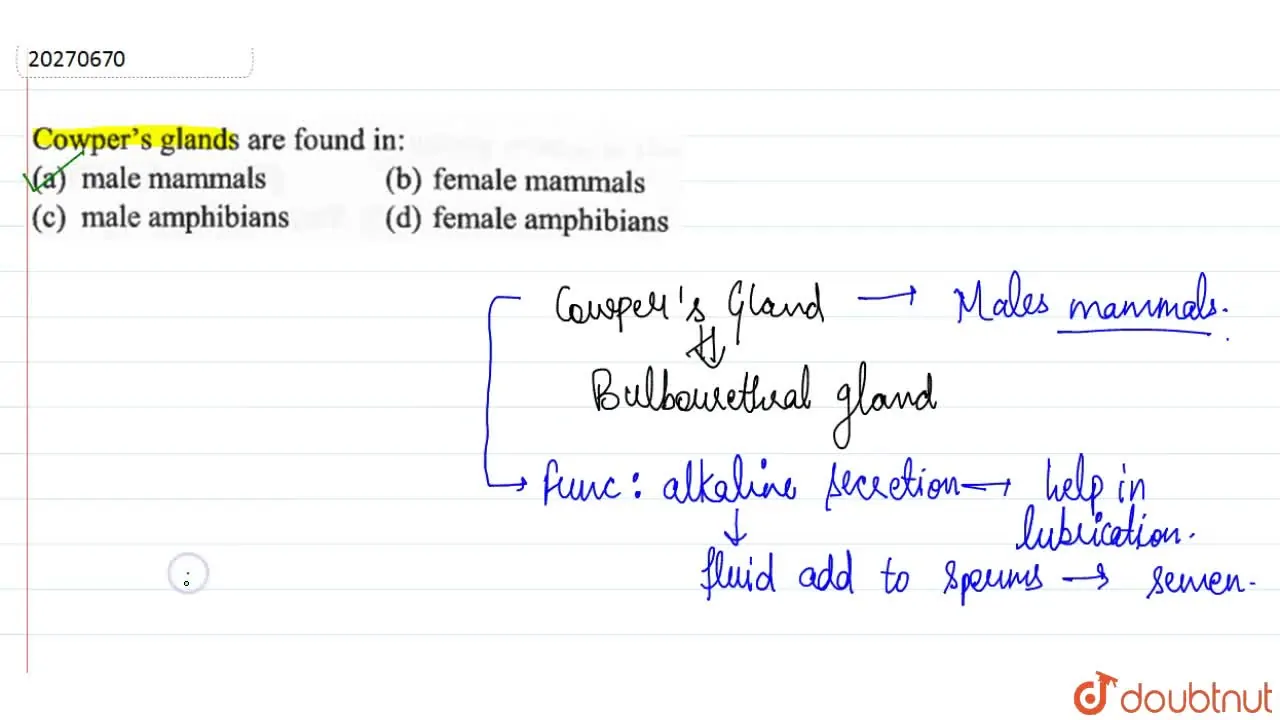 20270670
Cowper's glands are found in:
(a) male mammals (b) female mammals
(c) male amphibians (d) female amphibians
Cowper's Gland → Males mammals.
Bulbourethral gland
func: alkaline secretion → help in
lubrication.
fluid add to sperms → semen.
doubtnut